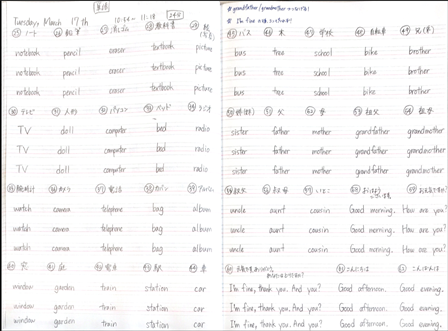 Tuesday, March 17th
ノート 鉛筆 消しゴム 教科書
notebook pencil eraser textbook picture
notebook pencil eraser textbook picture
notebook pencil eraser textbook picture
テレビ 人形 パソコン ベッド ラジオ
TV doll computer bed radio
TV doll computer bed radio
TV doll computer bed radio
腕時計 カメラ 電話
watch camera telephone bag album
watch camera telephone bag album
watch camera telephone bag album
庭 駅 車
window garden train station car
window garden train station car
window garden train station car
バス 木 学校 自転車
bus tree school bike brother
bus tree school bike brother
bus tree school bike brother
父 母 祖父 祖母
sister father mother grandfather grandmother
sister father mother grandfather grandmother
sister father mother grandfather grandmother
いとこ
uncle aunt cousin Good morning. How are you?
uncle aunt cousin Good morning. How are you?
uncle aunt cousin Good morning. How are you?
こんにちは
I'm fine, thank you. And you? Good afternoon. Good evening.
I'm fine, thank you. And you? Good afternoon. Good evening.
I'm fine, thank you. And you? Good afternoon. Good evening.